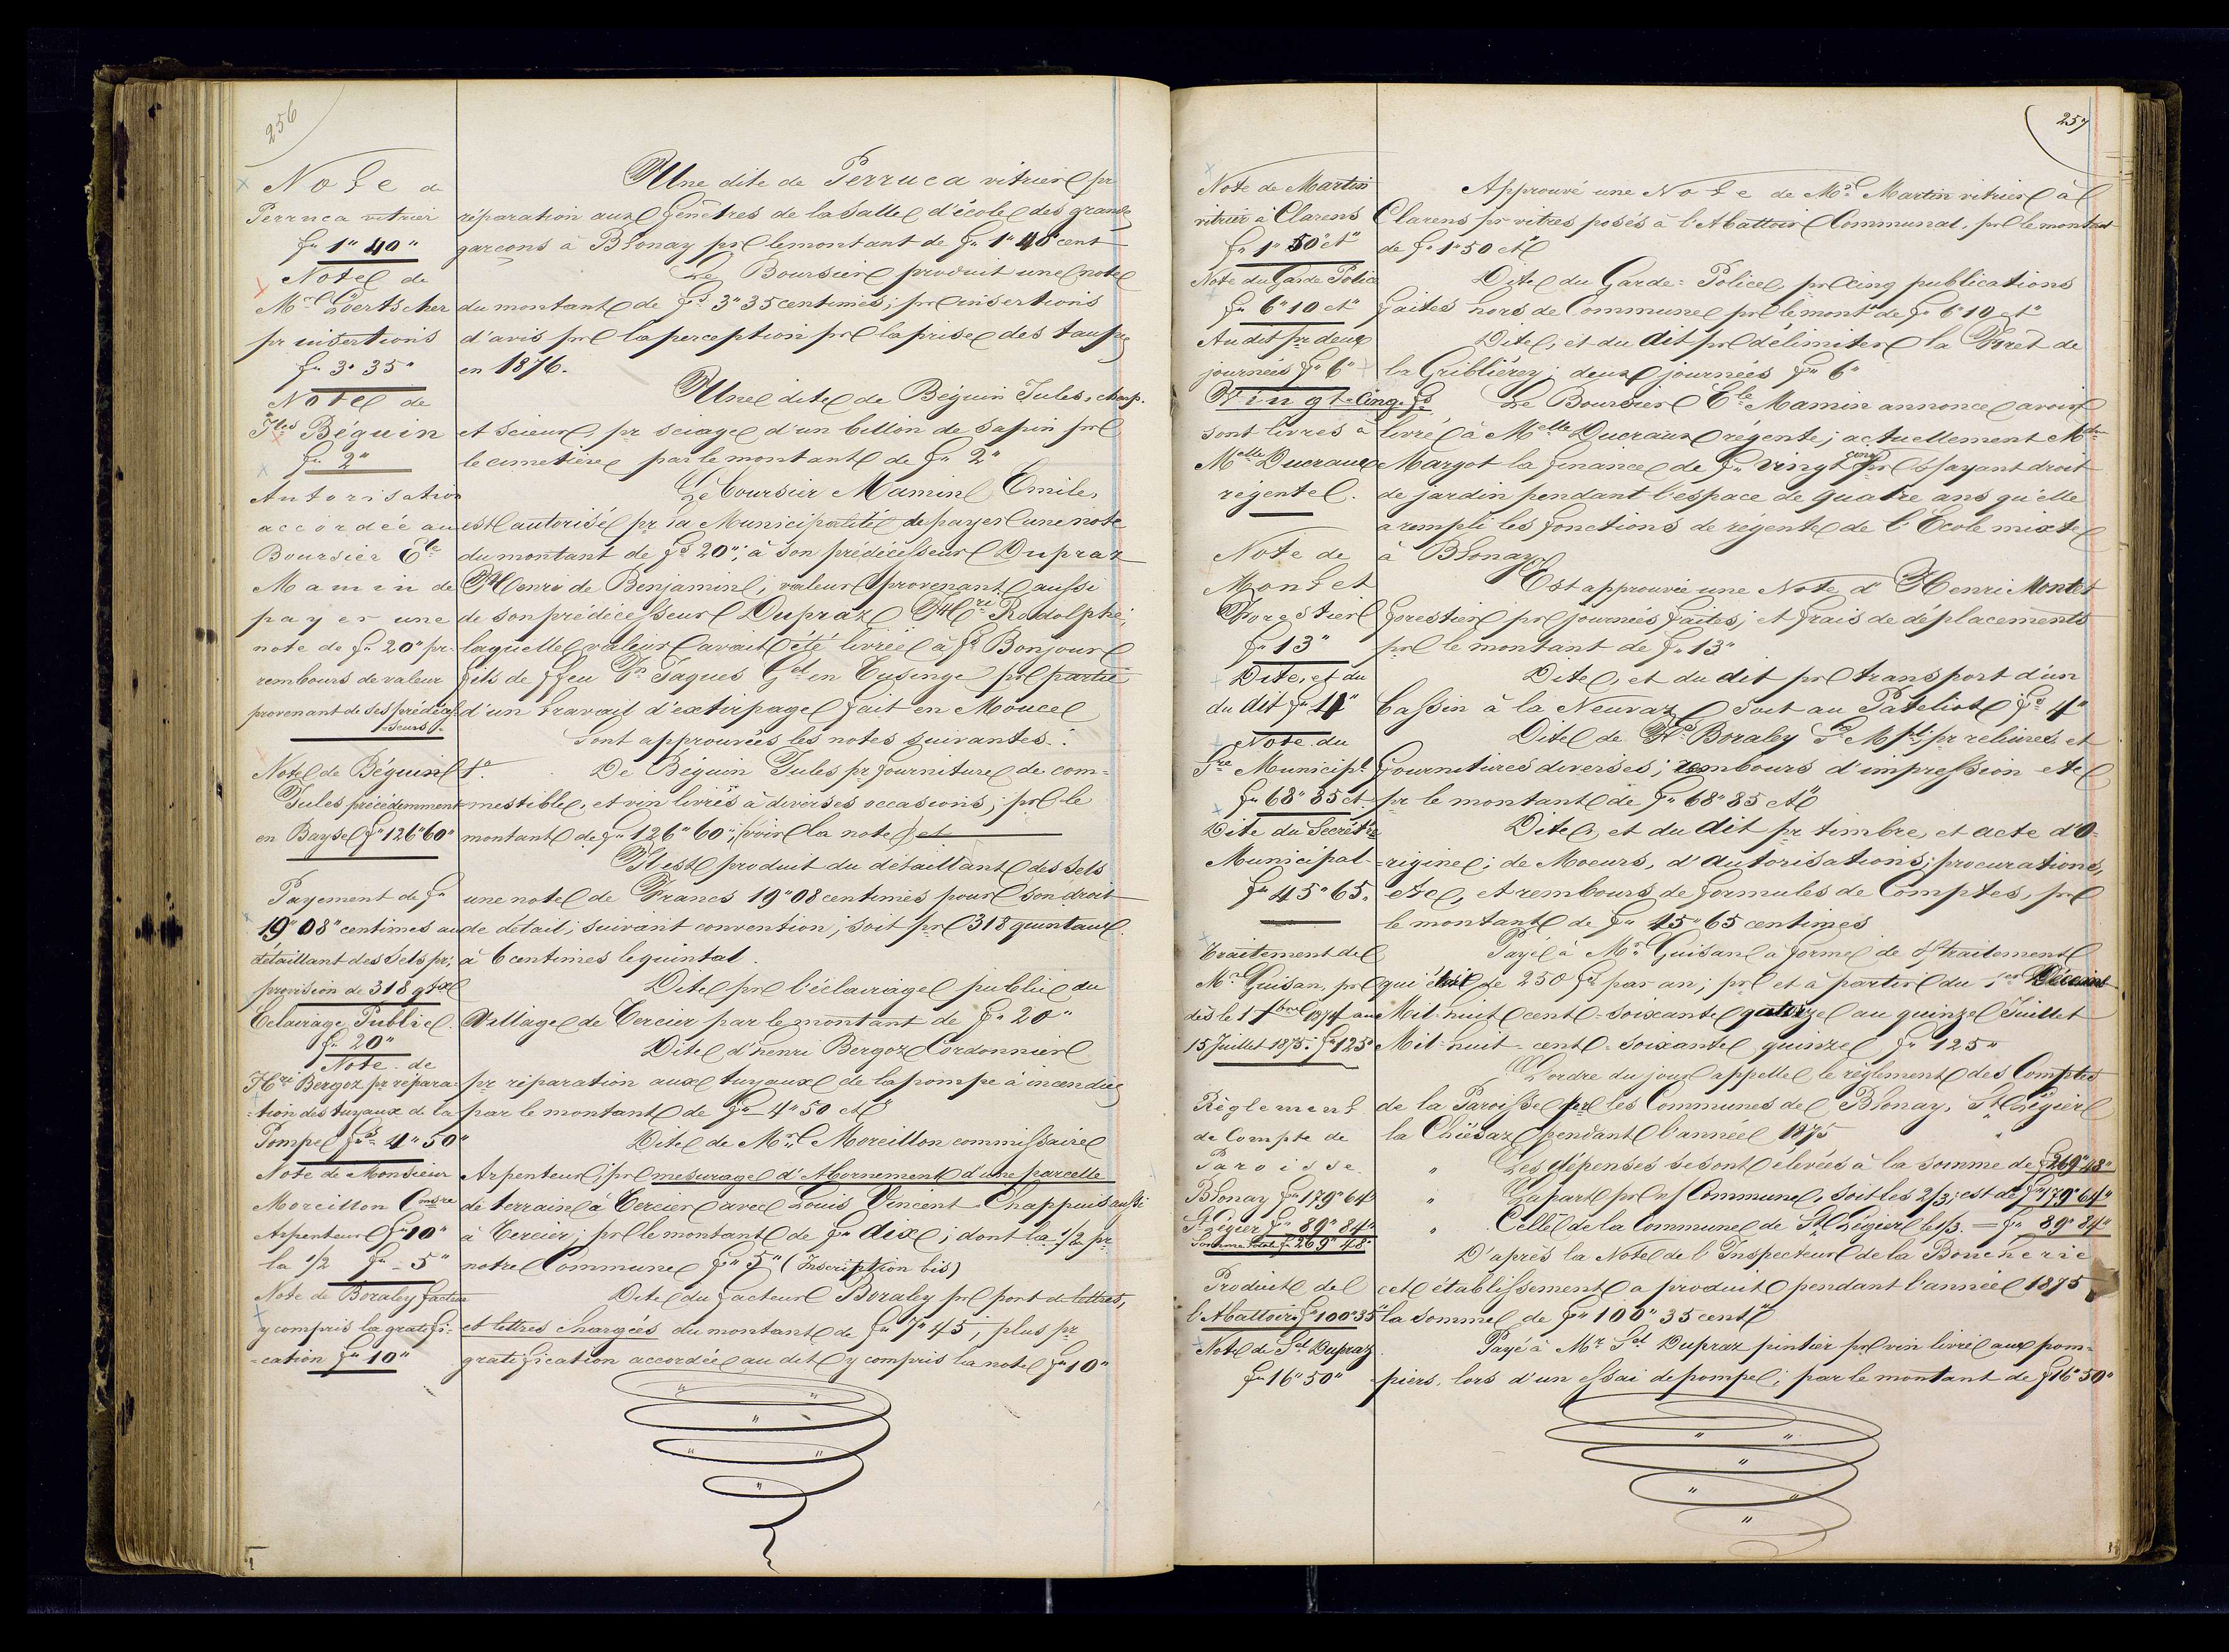 256
Note de
Perruca vitrier
fr 1" 40"
Note de
Mr Loertscher
pr insertions
fr 3" 35"
Note de
Jles Béguin
fr 2"
Autorisation
accordée au
Boursier Ele
Mamin de
payer une
note de fr 20" pr
rembours de valeur
provenant de ses prédéces-
-seurs.
Note de Béguin
Jules précédemment
en Bayse fr 126"60"
Payement de fr
19" 08" centimes au
détaillant des Sels pr
provision de 318 qtx
Eclairage Public
fr 20"
Note de
Hri Bergoz pr répara-
-tion des tuyaux de la
Pompe frs 4"50"
Note de Monsieur
Moreillon Cmsre
Arpenteur fr 10"
la 1/2 fr 5"
Note de Boraley facteur
y compris la gratifi-
-cation fr 10"
Une dite de Perruca vitrier pr
réparation aux fenêtres de la salle d'école des grands
garçons à Blonay pr le montant de fr 1" 40 cent
Le Boursier produit une note
du montant de frs 3" 35 centimes; pr insertions
d'avis pr la perception pr la prise des taupes
en 1876.
Une dite de Béguin Jules, charp.
et scieur, pr sciage d'un billon de sapin pr
le cimetière par le montant de fr 2"
Le boursier Mamin Emile,
est autorisé pr la Municipalité de payer une note
du montant de frs 20"; à son prédécesseur Dupraz
Henri de Benjamin, valeur provenant aussi
de son prédécesseur Dupraz Rodolphe,
laquelle valeur avait été livrée à Bonjour
fils de ffeu Jaques Gel en Tusinge pr partie
d'un travail d'extirpage fait en Mouce
Sont approuvées les notes suivantes:
1o. De Béguin Jules pr fourniture de com-
-mestible, et vin livrés à diverses occasions, pr le
montant de fr 126"60"; (voir la note) et
Il est produit du détaillant des Sels
une note de Francs 19"08 centimes pour son droit
de détail; suivant convention; soit pr 318 quintaux
à 6 centimes le quintal.
Dite pr l'éclairage public du
Village de Tercier par le montant de fr 20"
Dite d'henri Bergoz Cordonnier
pr réparation aux tuyaux de la pompe à incendie
par le montant de fr 4"50 ct
Dite de Mr Moreillon commissaire
Arpenteur; pr mesurage d'Abornement d'une parcelle
de terrain à Tercier avec Louis Vincent Chappuis aussi
à Tercier; pr le montant de fr dix; dont la 1/2 pr
notre Commune fr 5" (Inscription bis)
Dite du facteur Boraley pr port de lettres,
et lettres chargées du montant de fr 7"45; plus pr
gratification accordée au dit y compris la note fr 10"
257
Note de Martin
vitrier à Clarens
fr 1" 50 ct"
Note du Garde Police
fr 6"10 ct"
Au dit pr deux
journées fr 6"
Vingt-Cinq frs
sont livrés à
Melle Ducraux
régente.
Note de
Montet
Forestier
fr 13"
Dite, et du
du dit fr 4"
Note du
Sre Municipl
fr 68"85 ct
Dite du Secrétre
Municipal
fr 45"65.
Traitement de
Mr Guisan, pr
dès le 1 1874 au
15 Juillet 1875. fr 125"
Règlement
de Compte de
Paroisse
Blonay fr 179"64
St Légier fr 89"84"
Somme Total fr 269"48"
Produit de
l'Abattoir fr 100"35"
Note de Sel Dupraz
fr 16"50"
Approuvé une Note de Mr Martin vitrier à
Clarens pr vitres posés à l'Abattoir Communal, pr le montant
de fr 1"50 ct
Dite du Garde-Police, pr cinq publications
faites hors de Commune pr le mont de fr 6"10 ct"
Dite, et du dit pr délimiter la Foret de
la Gribliérey; deux journées fr 6"
Le Boursier Ele Mamin annonce avoir
livré à Melle Ducraux régente; actuellement Mde
Margot la finance de fr vingt cinq pr payant droit
de jardin pendant l'espace de quatre ans qu'elle
a rempli les fonctions de régente de l'Ecole mixte
à Blonay
Est approuvée une Note d'Henri Montet
forestier pr journées faites; et frais de déplacements
pr le montant de fr 13"
Dite, et du dit pr transport d'un
bassin à la Neuvaz soit au Pateliot frs 4"
Dite de Boraley Sre Mpl; pr reliures et
fournitures diverses; rembours d'impression etc
pr le montant de fr 68"85 ct
Dite, et du dit pr timbre, et acte d'o-
-rigine; de Moeurs, d'autorisations; procurations,
etc, et rembours de formules de Comptes, pr
le montant de fr 45"65 centimes
Payé à Mr Guisan à forme de st traitement
qui était de 250 frs par an; pr et à partir du 1er
Mil-huit cent-soixante quatorze au quinze Juillet
Mil-huit-cent-soixante quinze fr 125"
L'ordre du jour appelle le règlement des Comptes
de la Paroisse pr les Communes de Blonay, St Légier
la Chiésaz pendant l'année 1875
" Les dépenses se sont élevées à la somme de fr 269"48"
" La part pr n/ Commune, soit les 2/3; est de fr 179"64"
" Celle de la Commune de St Légier le 1/3. — fr 89"84"
D'après la Note de l'Inspecteur de la Boucherie
cet établissement a produit pendant l'année 1875
la somme de fr 100"35 cent
Payé à Mr Sel Dupraz pintier pr vin livré aux pom-
piers, lors d'un essai de pompe; par le montant de fr 16"50"